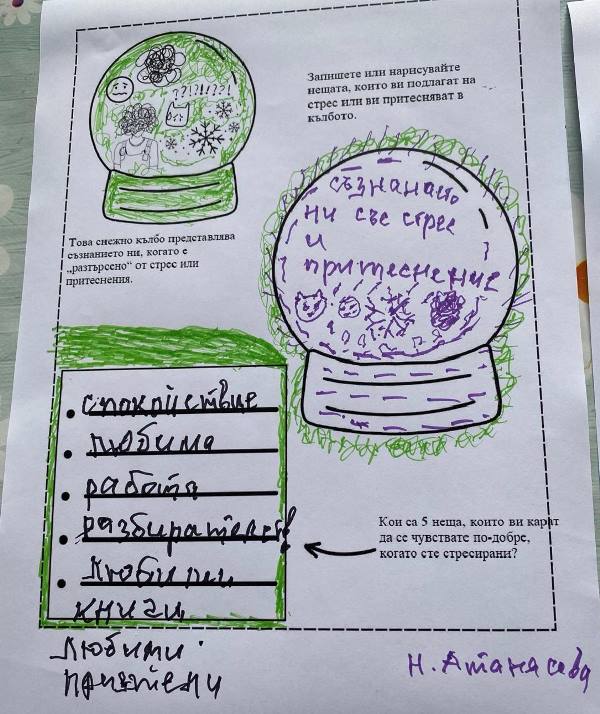 ??!!?!!?!
Запишете или нарисувайте
нещата, които ви подлагат на
стрес или ви притесняват в
кълбото.
съзнанието
ни със стрес
и
притеснение
Това снежно кълбо представлява
съзнанието ни, когато е
„разтърсено“ от стрес или
притеснения.
• спокойствие
• любима
• работа
• разбирателство
• любими
книги
любими
приятели
Кои са 5 неща, които ви карат
да се чувствате по-добре,
когато сте стресирани?
Н. Атанасова